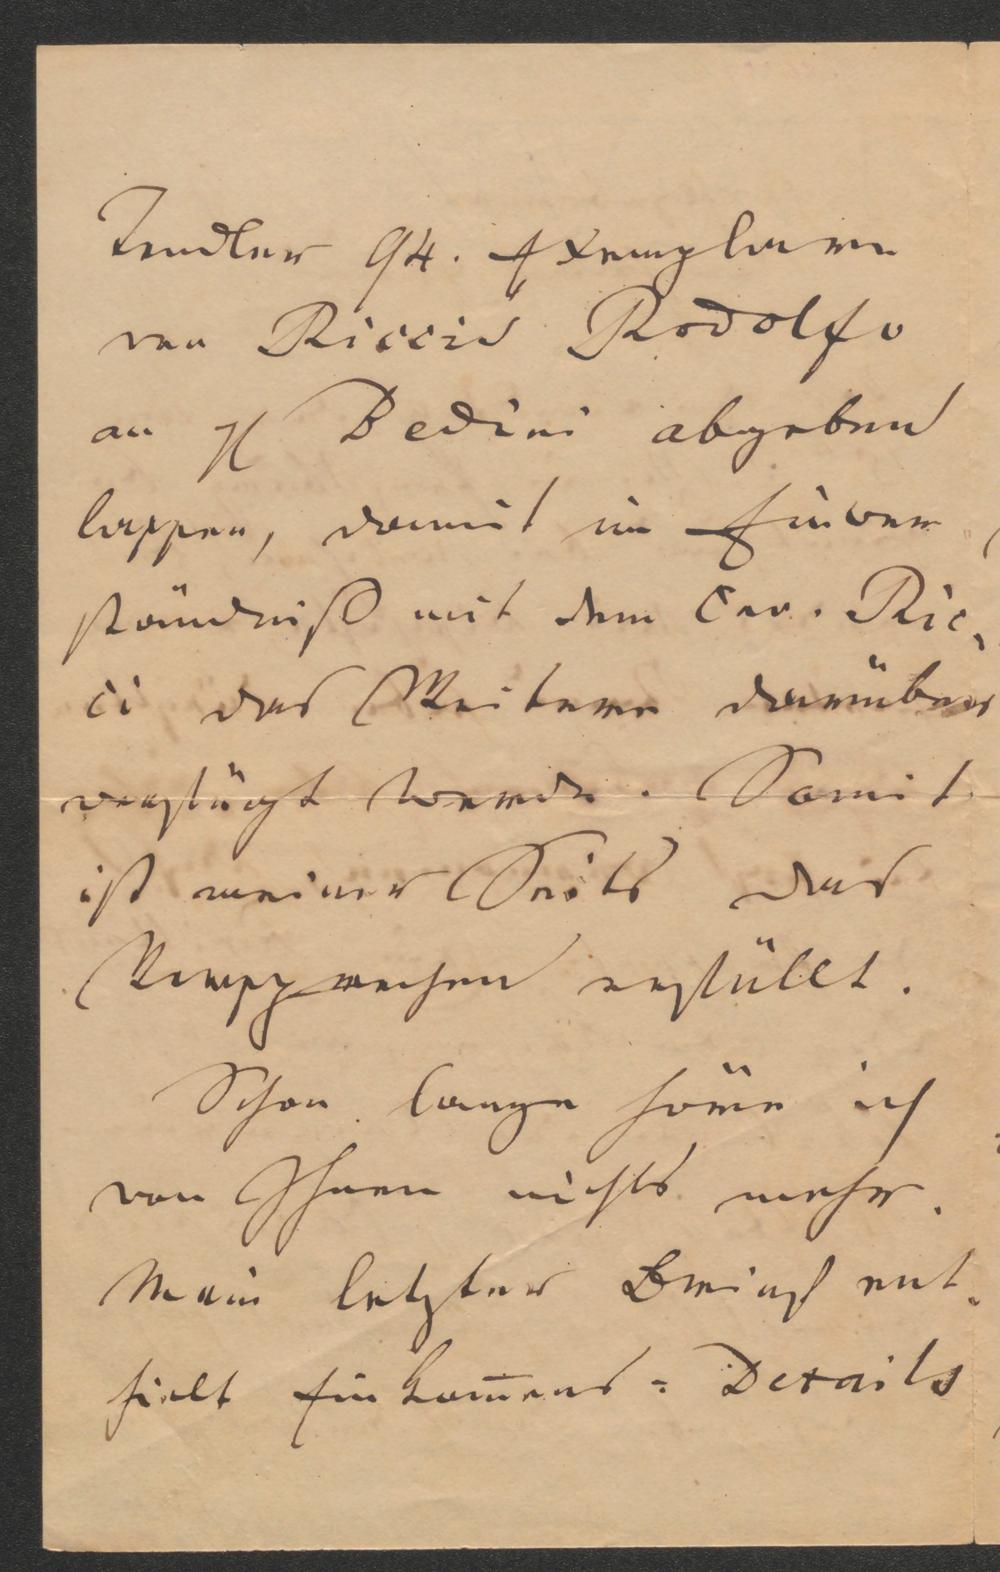 Tendler 94. Exemplare
von Riccis Rodolfo
an H Bedini abgeben
lassen, damit im Einver
ständniß mit dem Cav. Ric,
ci das Weitere darüber
verfügt werde. Somit
ist meiner Seits das
Versprechen erfüllt.
Schon lange höre ich
von Ihnen nichts mehr.
Mein letzter Brief ent,
hielt Einkom̅ens = Details